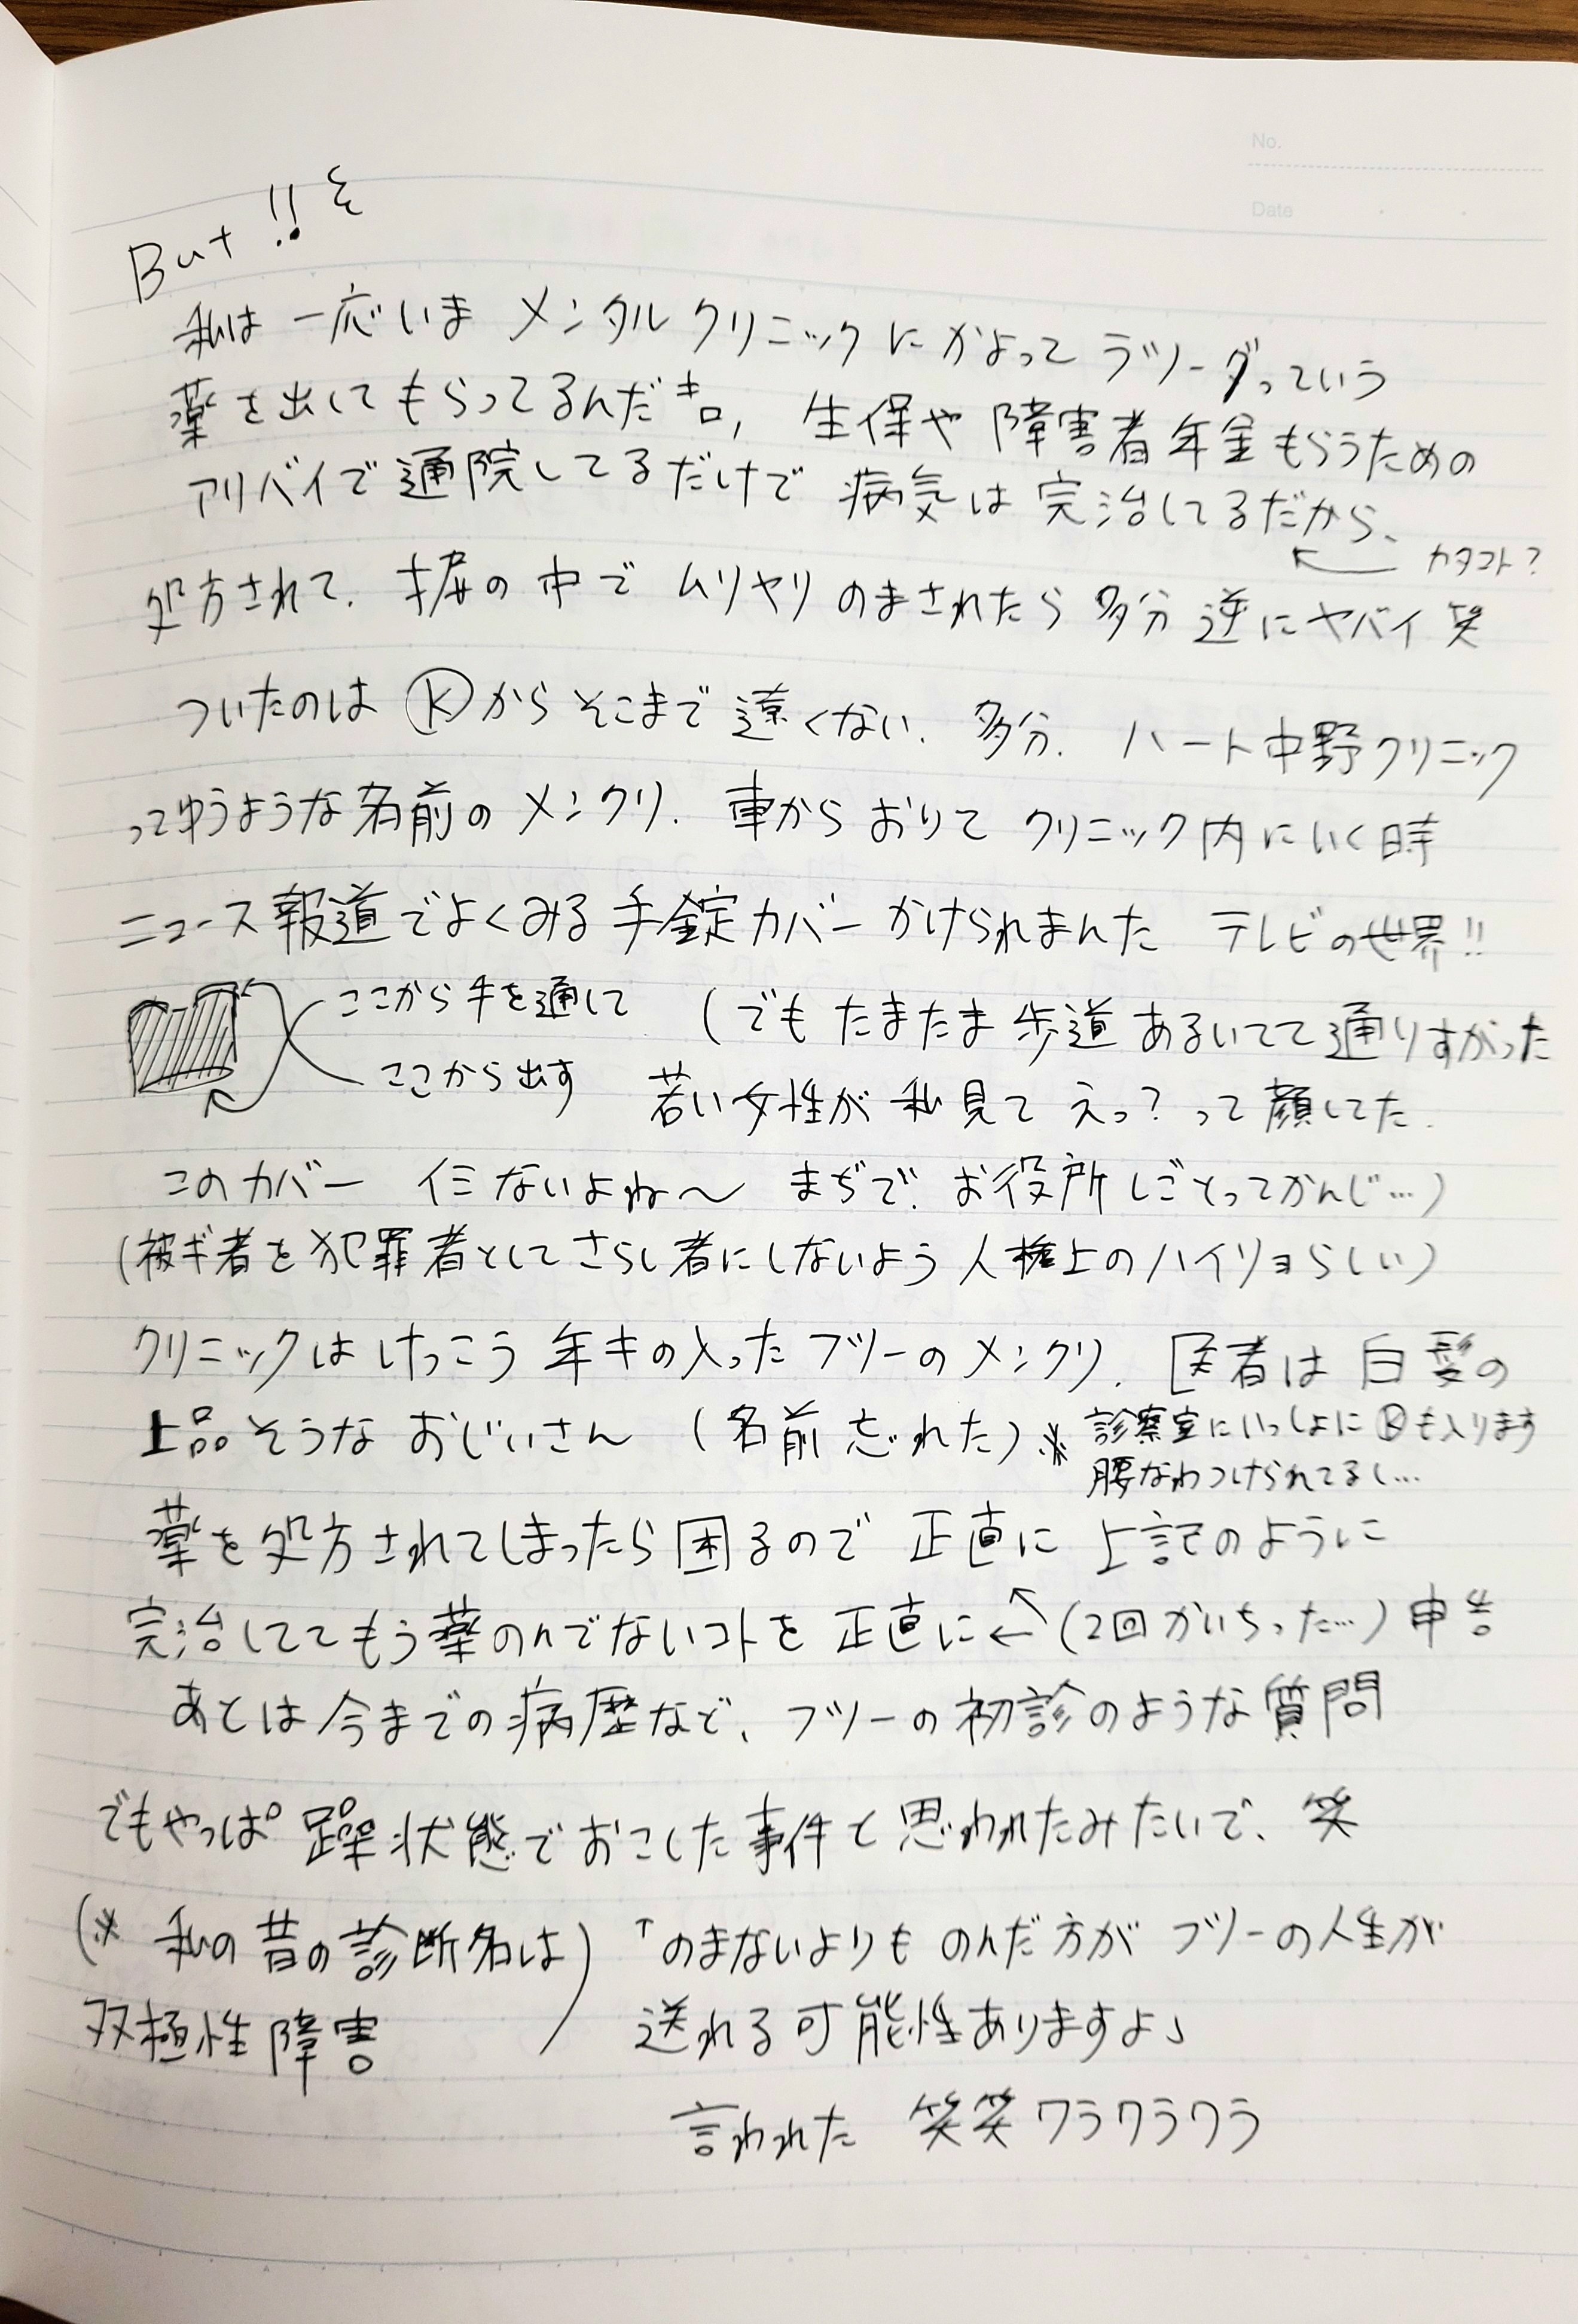 No.
Date
But !! ミ
私は一応いま メンタルクリニックにかよって ラツーダっていう
薬を出してもらってるんだ㌔, 生保や障害者年金もらうための
アリバイで通院してるだけで 病気は完治してるだから、
カタコト?
処方されて. 才屈の中で ムリヤリのまされたら 多分 逆にヤバイ 笑
ついたのは Ⓚから そこまで遠くない. 多分. ハート中野クリニック
ってゆうような名前のメンクリ. 車からおりて クリニック内にいく時
ニュース報道でよくみる手錠カバーかけられまんた テレビの世界!!
ここから手を通して
ここから出す
(でも たまたま 歩道 あるいてて通りすがった
若い女性が 私見て えっ? って顔してた.
このカバー イミないよね〜 まぢで. お役所しごとってかんじ…)
(被ギ者を犯罪者としてさらし者にしないよう 人権上のハイリョらしい)
クリニックはけっこう年キの入ったフツーのメンクリ. 医者は白髪の
上品そうな おじいさん (名前 忘れた) ※ 診察室にいっしょにⓀも入ります
腰なわつけられてるし…
薬を処方されてしまったら困るので 正直に 上記のように
完治しててもう薬のんでないコトを 正直に ←↑ (2回かいちった…) 申告
あとは今までの病歴など、フツーの初診のような質問
でもやっぱ 躁状態でおこした事件と思われたみたいで、笑
(※ 私の昔の診断名は
双極性障害)
「のまないよりも のんだ方が フツーの人生が
送れる可能性ありますよ」
言われた 笑笑ワラワラワラ